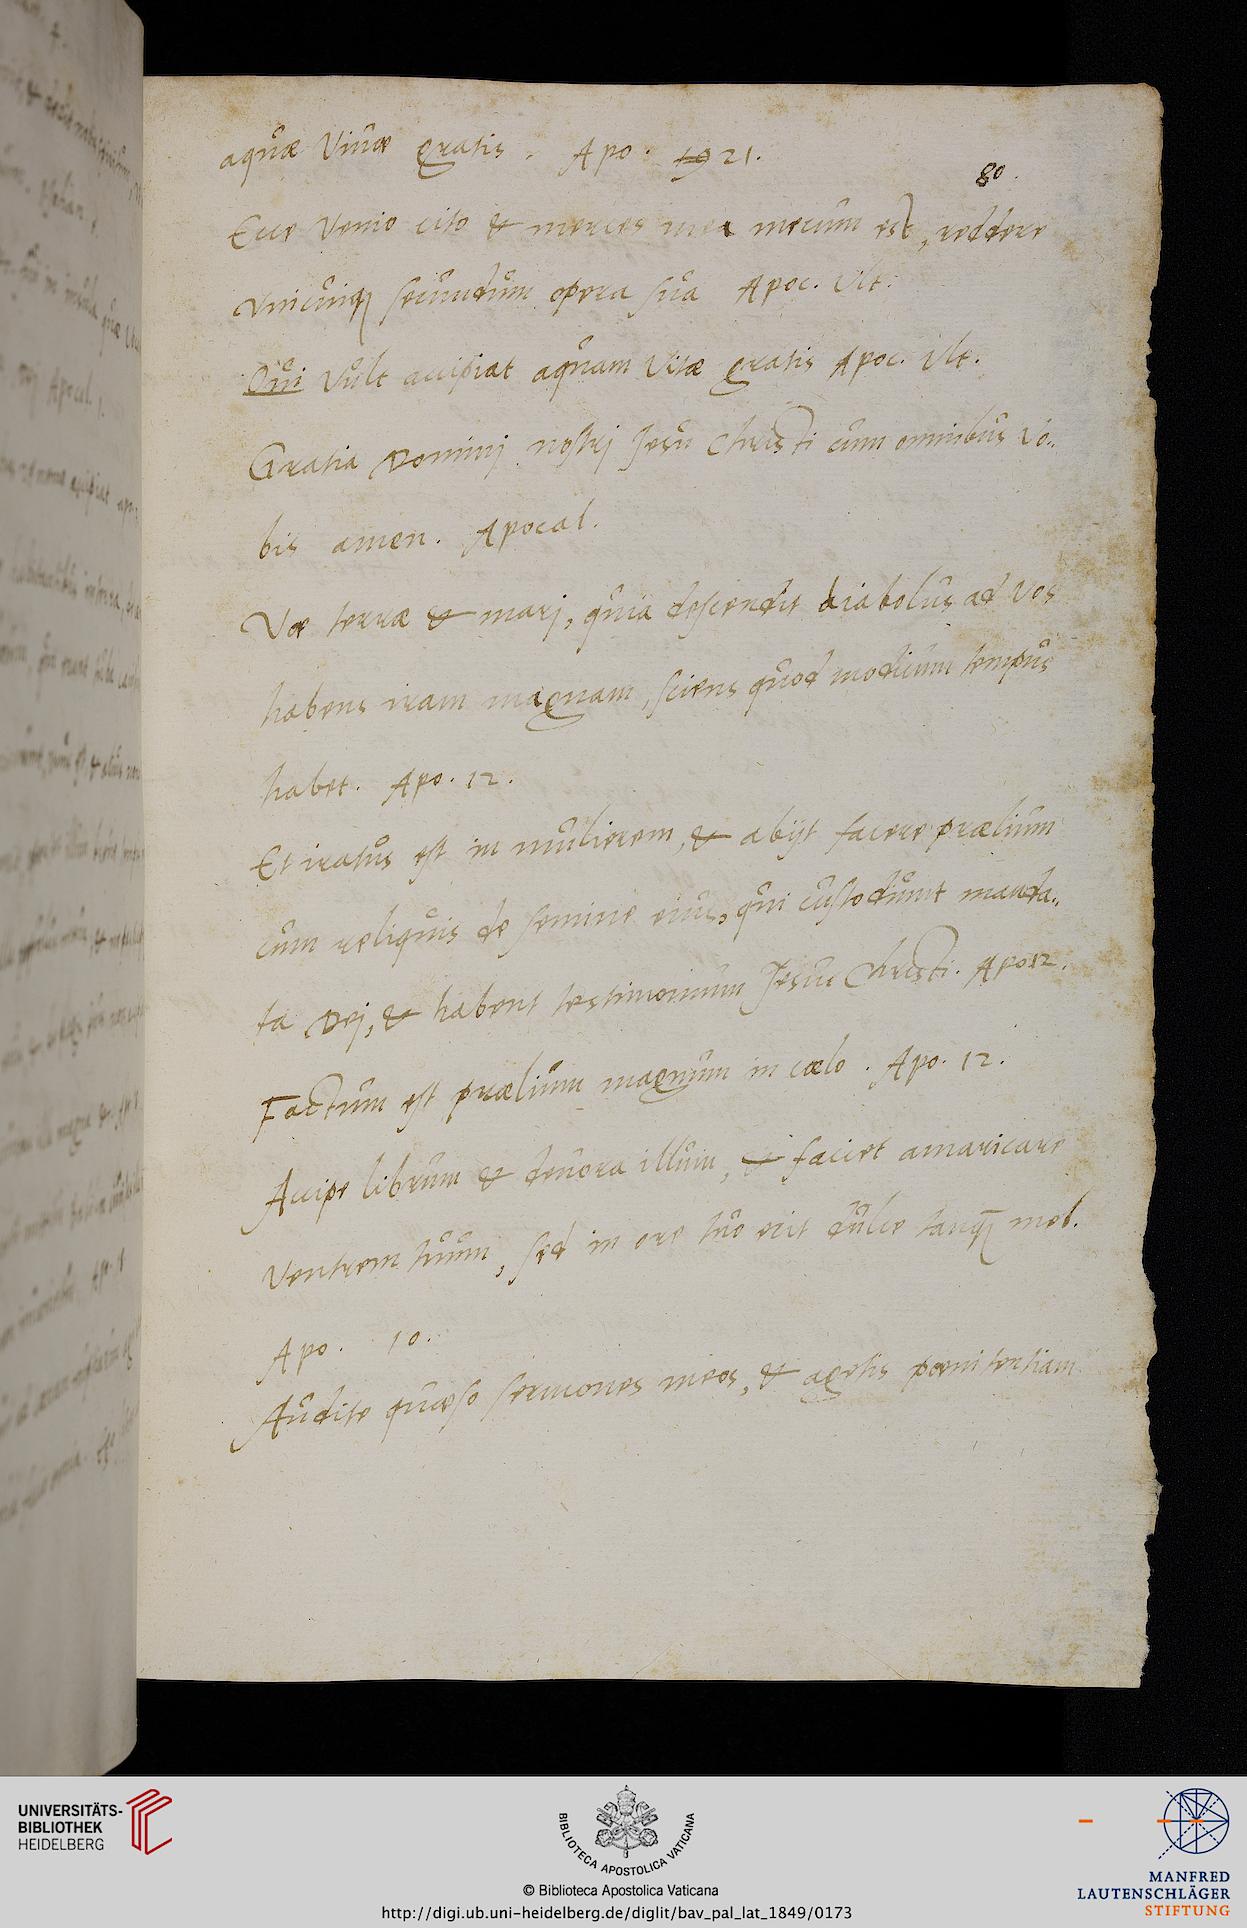 aquæ viuæ gratis. Apo. 19 21.
80.
Ecce Venio cito & merces mea mecum est, reddere
vnicuiq; secundum opera sua Apoc. Vlt.
Qui Vult accipiat aquam Vitæ gratis Apoc. Vlt.
Gratia Dominj nostrj Jesu Christi cum omnibus vo..
bis amen. Apocal.
Væ terræ & marj, quia descendit diabolus ad vos
habens iram magnam, sciens quod modicum tempus
habet. Apo. 12.
Et iratus est in mulierem, & abijt facere prælium
cum reliquis de semine eius, qui custodiunt manda..
ta Dej, & habent testimonium Jesu Christi. Apo 12.
Factum est prælium magnum in cælo. Apo. 12.
Accipe librum & deuora illum, & faciet amaricare
Ventrem tuum, sed in ore tuo erit dulce tanq; mel.
Apo. 10.
Audite quæso sermones meos, & agetis pœnitentiam
UNIVERSITÄTS-
BIBLIOTHEK
HEIDELBERG
BIBLIOTECA APOSTOLICA VATICANA
© Biblioteca Apostolica Vaticana
http://digi.ub.uni-heidelberg.de/diglit/bav_pal_lat_1849/0173
MANFRED
LAUTENSCHLÄGER
STIFTUNG